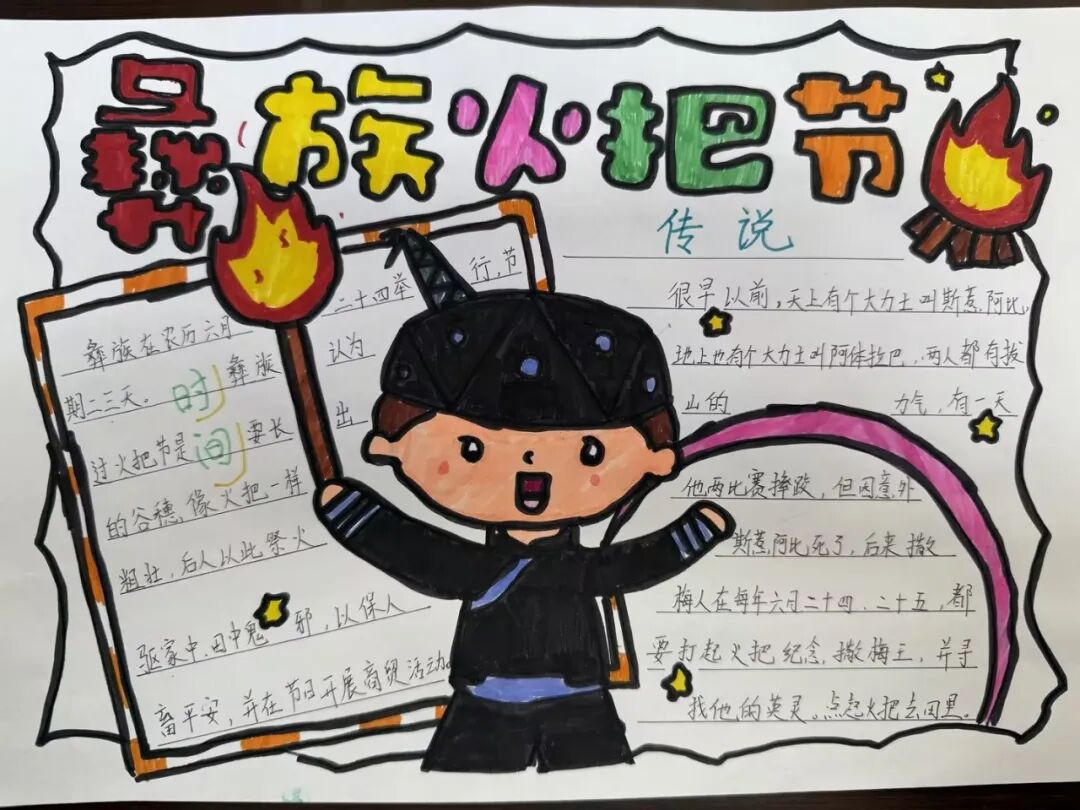 彝族火把节
彝族在农历六月二十四举行,节
期二三天。彝族认为
时间
过火把节是要长出
的谷穗,像火把一样
粗壮,后人以此祭火
驱家中、田中鬼邪,以保人
畜平安,并在节日开展商贸活动。
传说
很早以前,天上有个大力士叫斯惹阿比,
地上也有个大力士叫阿体拉巴,两人都有拔
山的力气,有一天
他两比赛摔跤,但因意外
斯惹阿比死了,后来撒
梅人在每年六月二十四、二十五,都
要打起火把纪念撒梅王,并寻
找他的英灵。点起火把去田里。